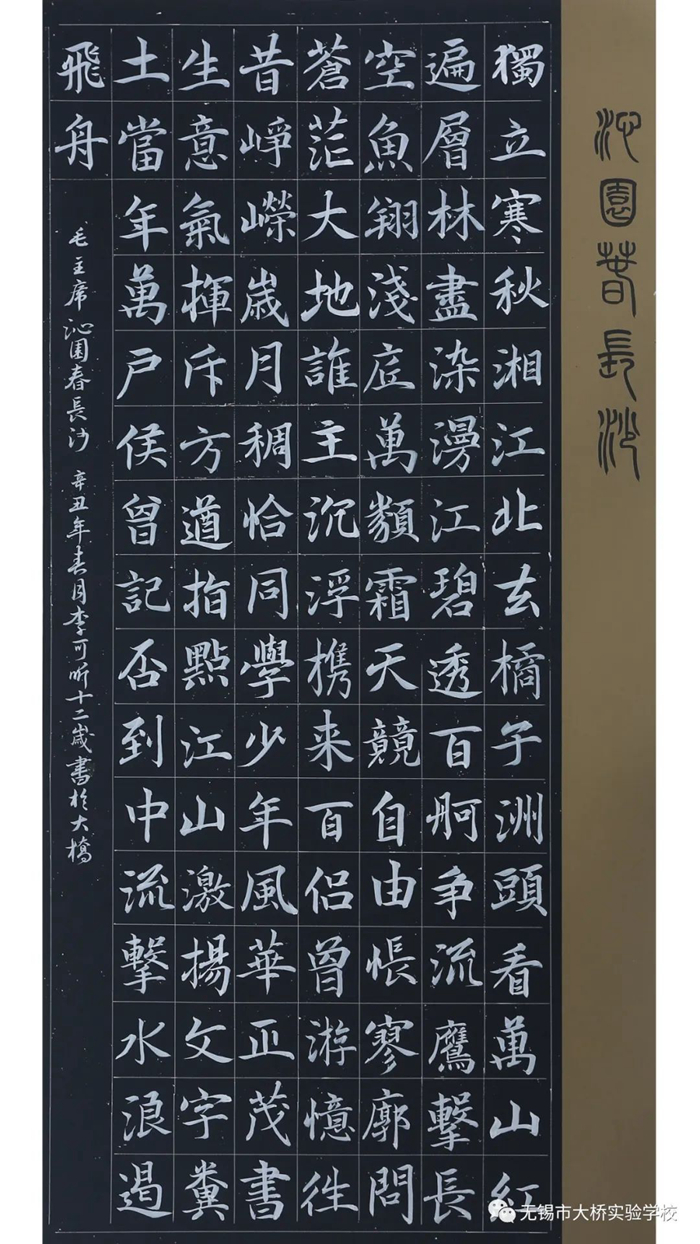 沁園春長沙
獨立寒秋湘江北去橘子洲頭看萬山紅
遍層林盡染漫江碧透百舸争流鷹擊長
空魚翔淺底萬類霜天競自由悵寥廓問
蒼茫大地誰主沉浮携来百侣曾游憶往
昔崢嶸歲月稠恰同學少年風華正茂書
生意氣揮斥方遒指點江山激揚文字糞
土當年萬户侯曾記否到中流擊水浪遏
飛舟
毛主席沁園春長沙 辛丑年春月李可昕十二歲書於大橋
无锡市大桥实验学校